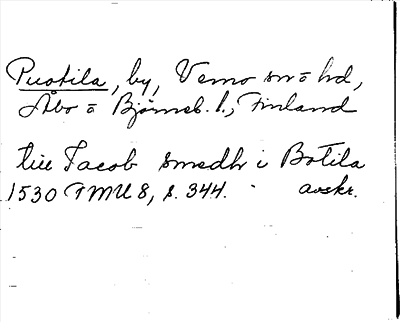 Puotila, by, Vemo sn o hd,
Åbo o Björneb. l., Finland
till Jacob smedh i Botila
1530 FMU 8, s. 344. avskr.